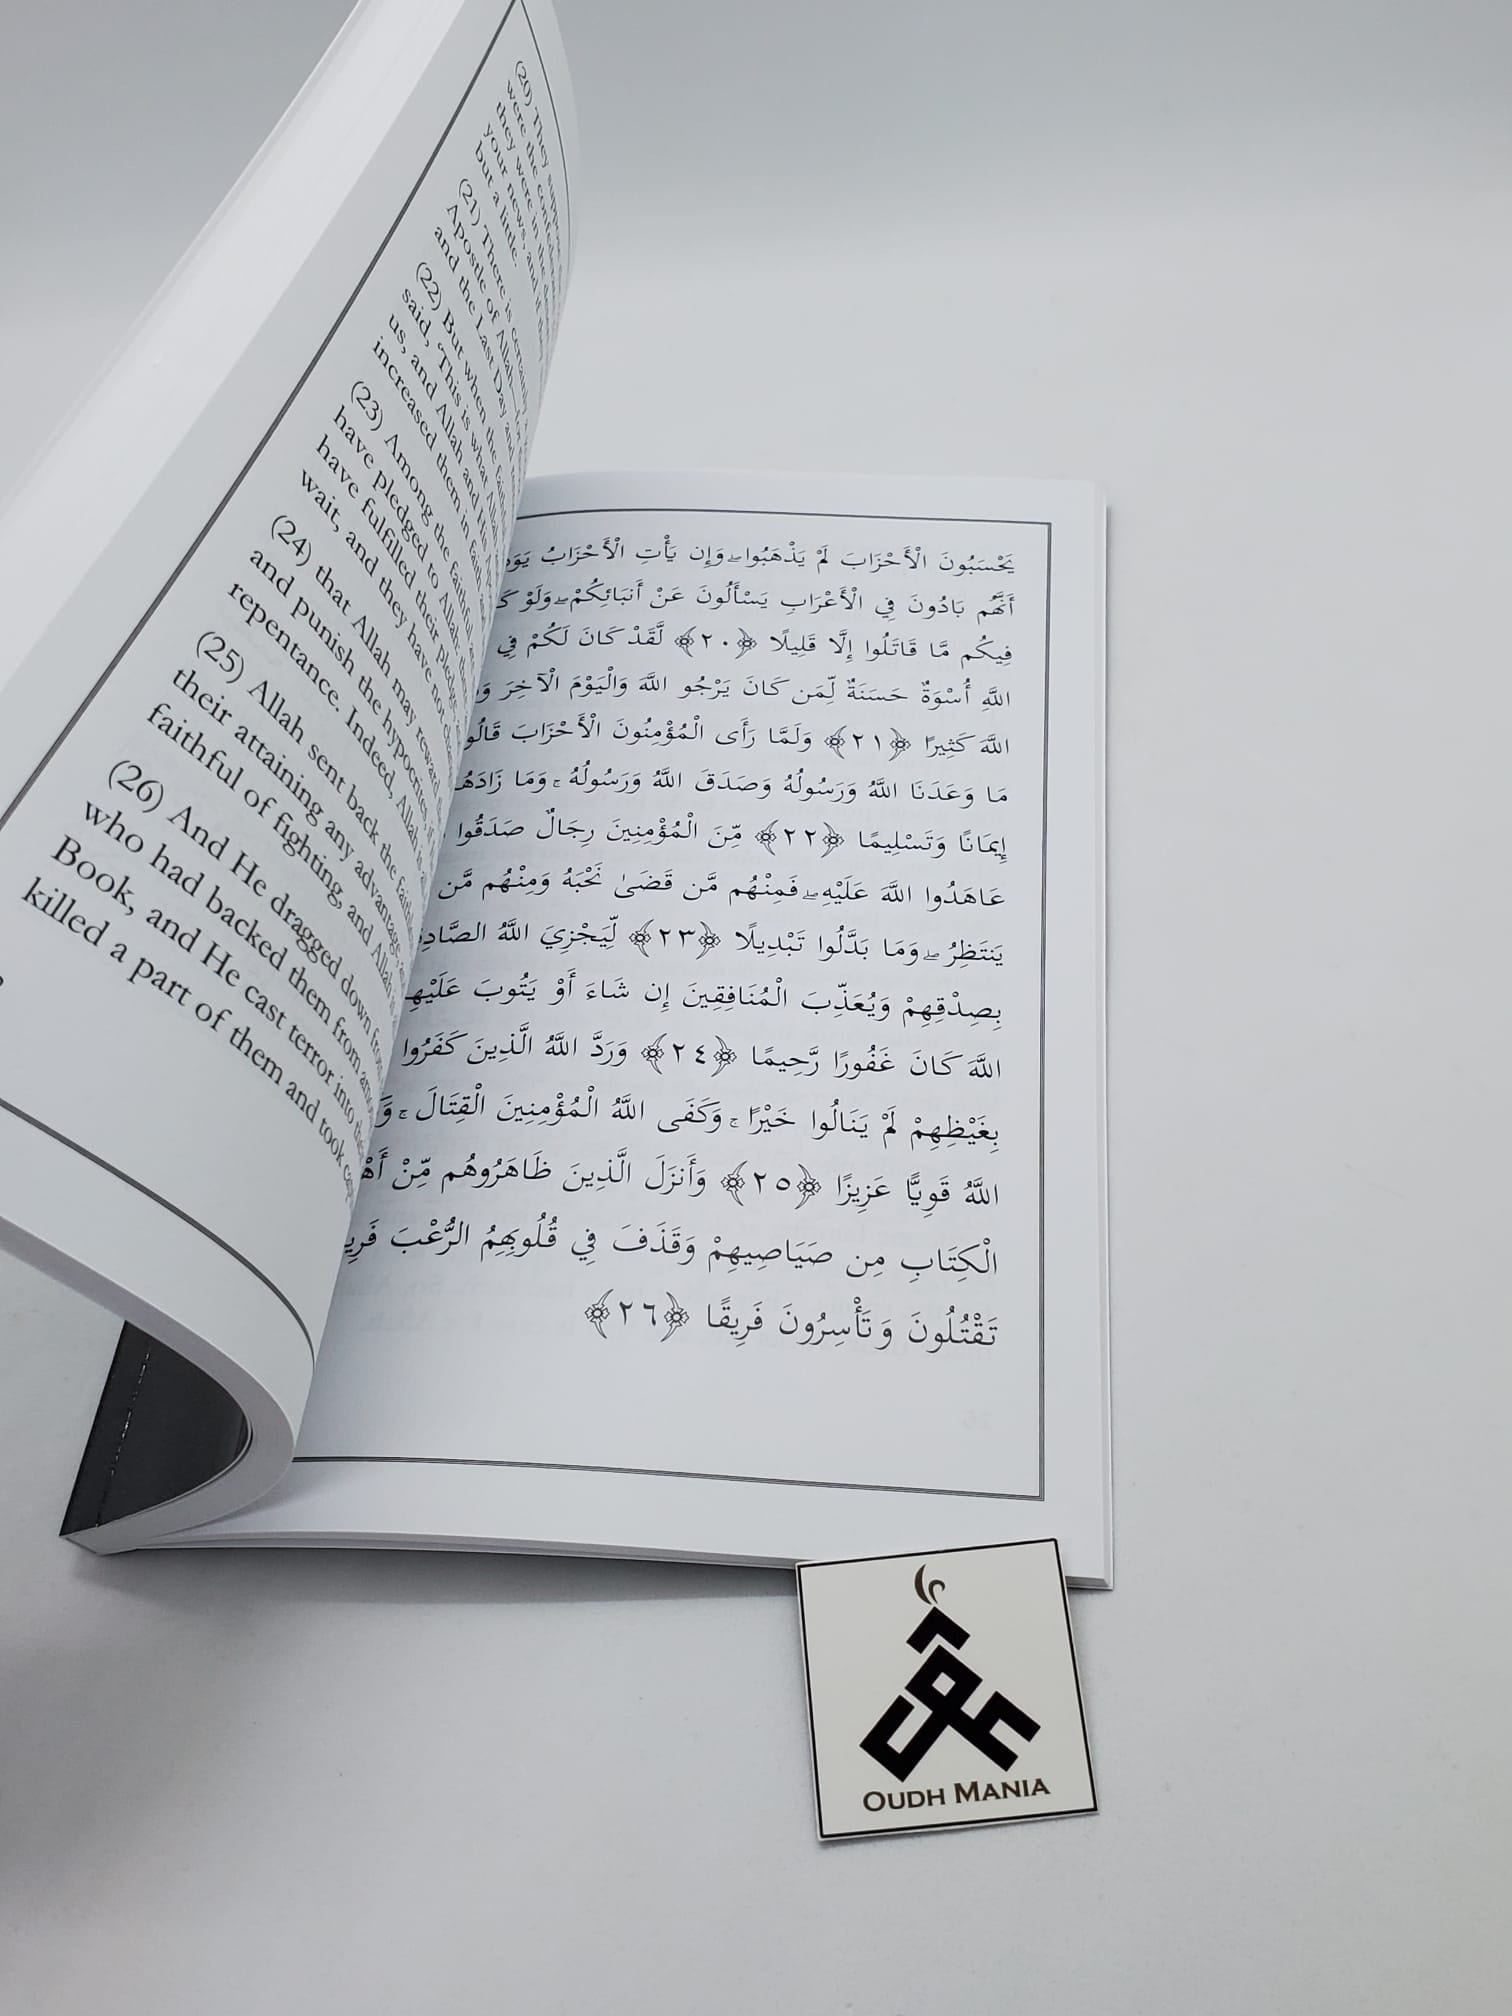 (20) They suppose
were the confederates
they were in the desert
your news, and if they
but a little.
(21) There is certainly
Apostle of Allah—for
and the Last Day and
(22) But when the faithful
said, ‘This is what Allah
us, and Allah and His
increased them in faith
(23) Among the faithful are
have pledged to Allah: there
have fulfilled their pledge,
wait, and they have not
(24) that Allah may reward
and punish the hypocrites,
repentance. Indeed, Allah is
(25) Allah sent back the faithless
their attaining any advantage,
faithful of fighting, and Allah is
(26) And He dragged down from
who had backed them from among
Book, and He cast terror into their
killed a part of them and took
يَحْسَبُونَ الْأَحْزَابَ لَمْ يَذْهَبُوا ۖ وَإِن يَأْتِ الْأَحْزَابُ
أَنَّهُم بَادُونَ فِي الْأَعْرَابِ يَسْأَلُونَ عَنْ أَنبَائِكُمْ ۖ وَلَوْ
فِيكُم مَّا قَاتَلُوا إِلَّا قَلِيلًا ﴿٢٠﴾ لَّقَدْ كَانَ لَكُمْ فِي
اللَّهِ أُسْوَةٌ حَسَنَةٌ لِّمَن كَانَ يَرْجُو اللَّهَ وَالْيَوْمَ الْآخِرَ
اللَّهَ كَثِيرًا ﴿٢١﴾ وَلَمَّا رَأَى الْمُؤْمِنُونَ الْأَحْزَابَ
مَا وَعَدَنَا اللَّهُ وَرَسُولُهُ وَصَدَقَ اللَّهُ وَرَسُولُهُ ۚ وَمَا
إِيمَانًا وَتَسْلِيمًا ﴿٢٢﴾ مِّنَ الْمُؤْمِنِينَ رِجَالٌ صَدَقُوا
عَاهَدُوا اللَّهَ عَلَيْهِ ۖ فَمِنْهُم مَّن قَضَىٰ نَحْبَهُ وَمِنْهُم مَّن
يَنتَظِرُ ۖ وَمَا بَدَّلُوا تَبْدِيلًا ﴿٢٣﴾ لِّيَجْزِيَ اللَّهُ
بِصِدْقِهِمْ وَيُعَذِّبَ الْمُنَافِقِينَ إِن شَاءَ أَوْ يَتُوبَ
اللَّهَ كَانَ غَفُورًا رَّحِيمًا ﴿٢٤﴾ وَرَدَّ اللَّهُ الَّذِينَ كَفَرُوا
بِغَيْظِهِمْ لَمْ يَنَالُوا خَيْرًا ۚ وَكَفَى اللَّهُ الْمُؤْمِنِينَ الْقِتَالَ ۚ
اللَّهُ قَوِيًّا عَزِيزًا ﴿٢٥﴾ وَأَنزَلَ الَّذِينَ ظَاهَرُوهُم مِّنْ
الْكِتَابِ مِن صَيَاصِيهِمْ وَقَذَفَ فِي قُلُوبِهِمُ الرُّعْبَ
تَقْتُلُونَ وَتَأْسِرُونَ فَرِيقًا ﴿٢٦﴾
OUDH MANIA